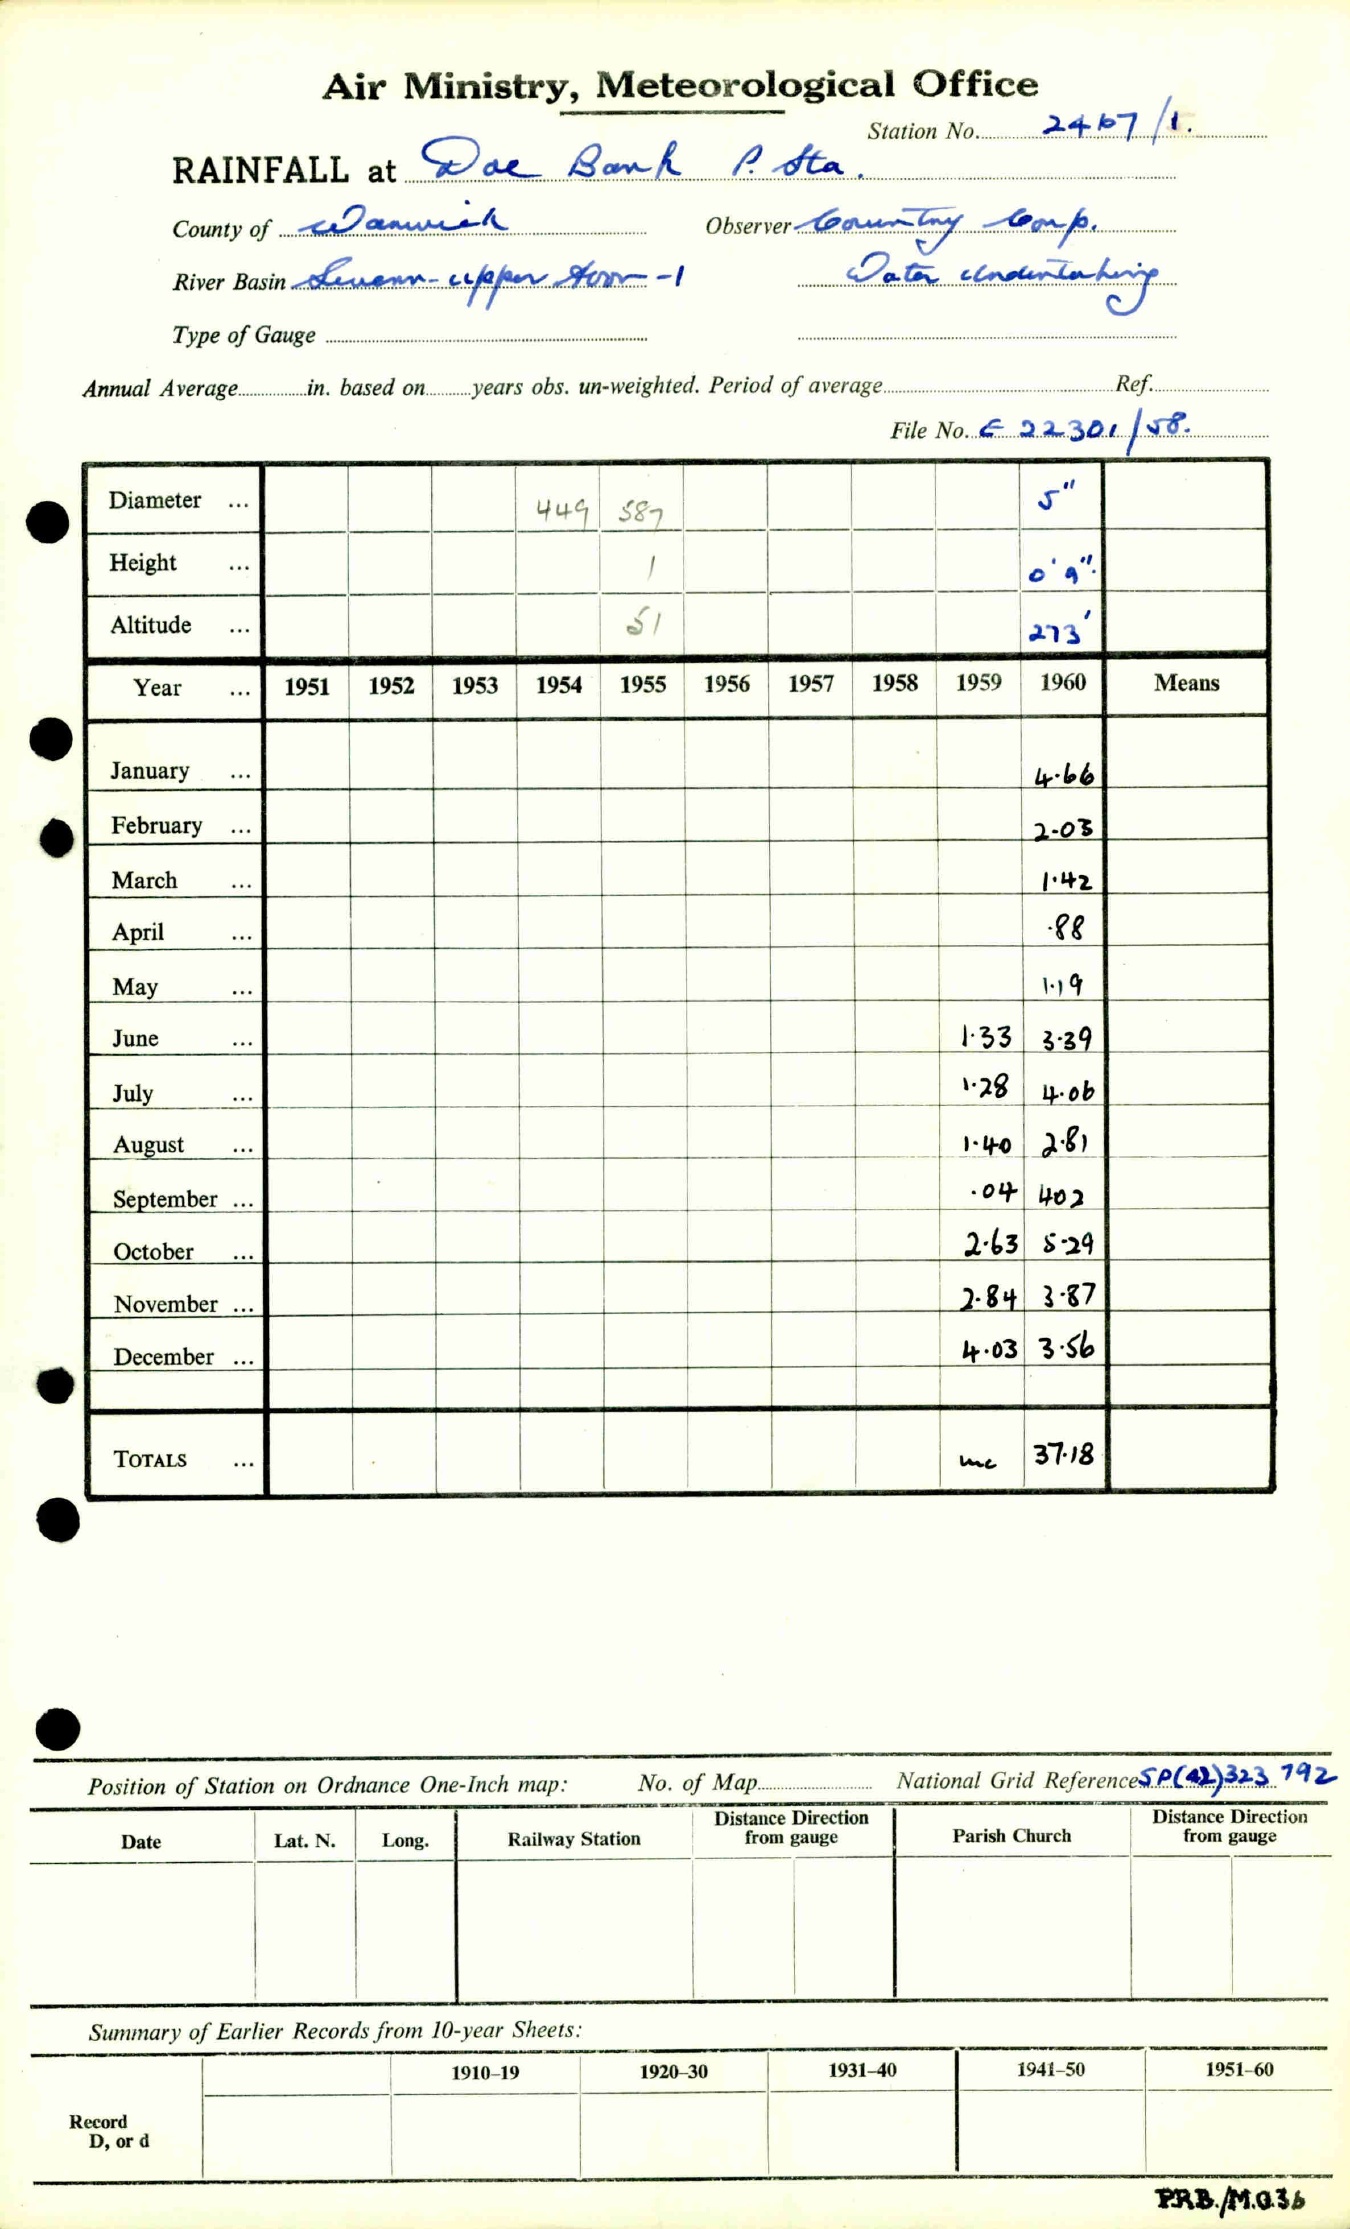 Air Ministry, Meteorological Office
Station No. 2467/1.
RAINFALL at Doe Bank P. Sta.
County of Warwick Observer Coventry Corp.
River Basin Severn-Upper Avon-1 Water Undertaking
Type of Gauge
Annual Average in. based on years obs. un-weighted. Period of average Ref.
File No. E 22301/58.
Diameter ... 449 587 5"
Height ... 1 0' 9".
Altitude ... 51 273'
Year ... 1951 1952 1953 1954 1955 1956 1957 1958 1959 1960 Means
January ... 4.66
February ... 2.03
March ... 1.42
April ... .88
May ... 1.19
June ... 1.33 3.39
July ... 1.28 4.06
August ... 1.40 2.81
September ... .04 402
October ... 2.63 5.29
November ... 2.84 3.87
December ... 4.03 3.56
TOTALS ... inc 37.18
Position of Station on Ordnance One-Inch map: No. of Map National Grid Reference SP(42)323 792
Date Lat. N. Long. Railway Station Distance Direction from gauge Parish Church Distance Direction from gauge
Summary of Earlier Records from 10-year Sheets:
1910–19 1920–30 1931–40 1941–50 1951–60
Record
D, or d
P.R.B./M.O.36